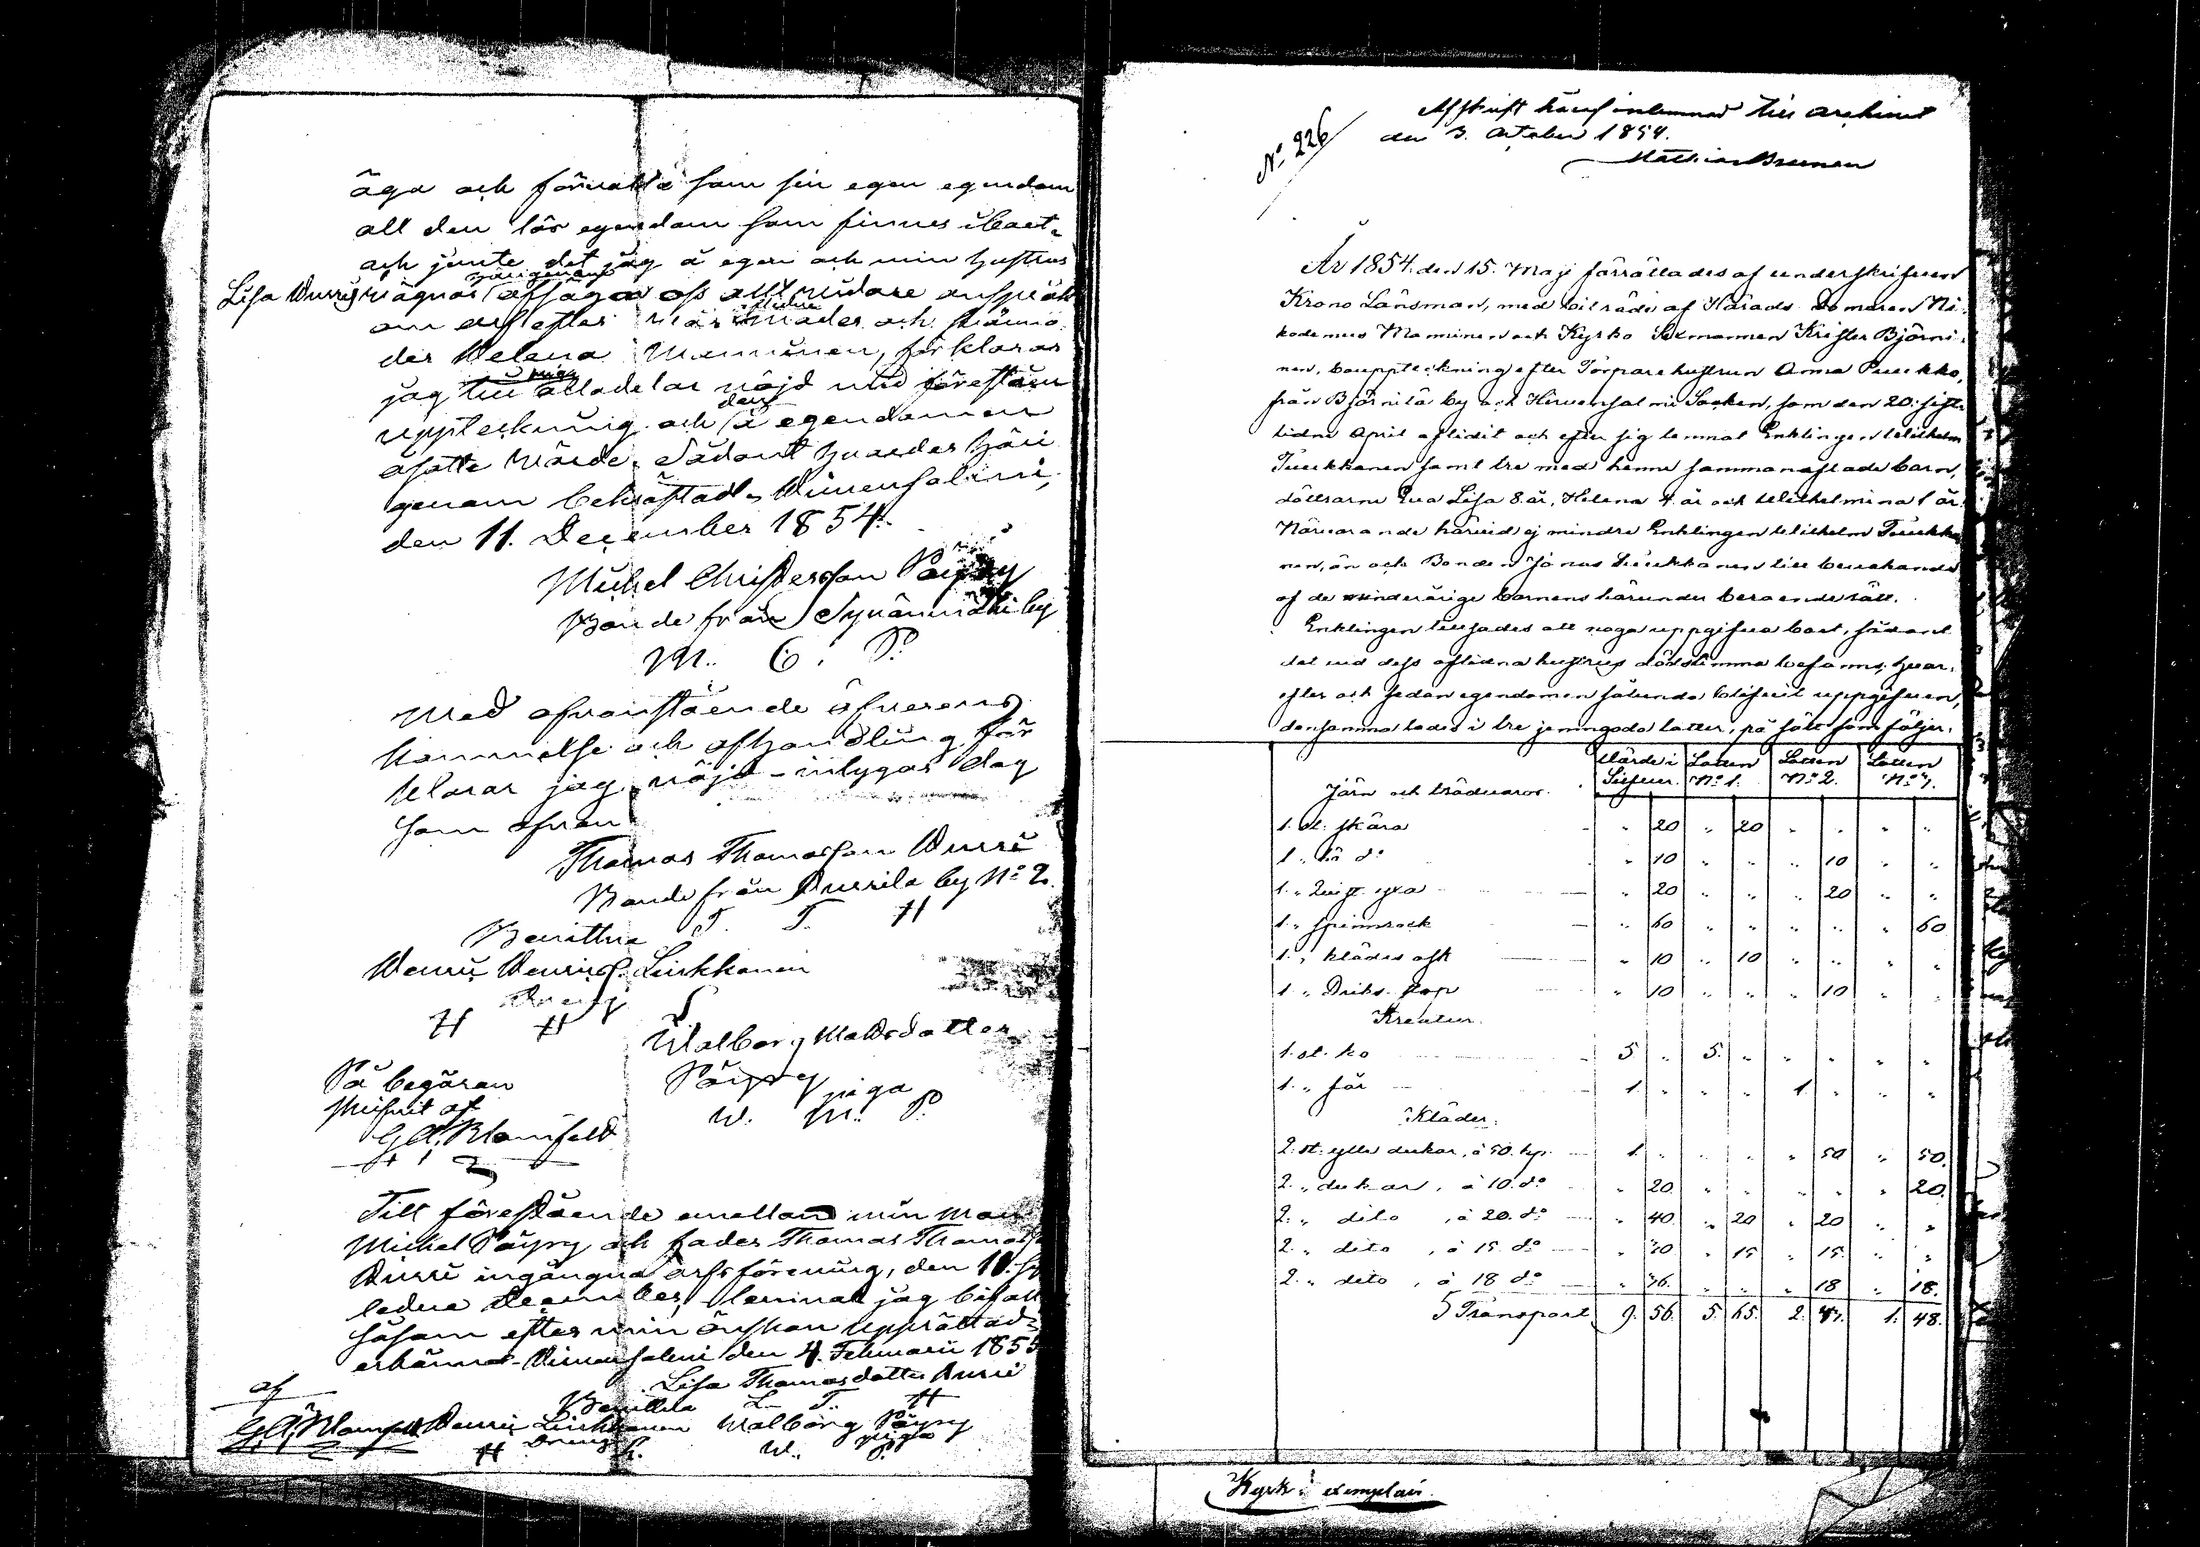 äga och förvalta som sin egen egendom
all den lös egendom som finnes i boet
och jemte det jag å egen och min hustrus
Lisa Hurri wägnar härigenom afsäger oss allt widare anspråk
om arf efter wår aflidne moder och swärmo
der Helena Manninen, förklarar
jag mig till alla delar nöjd med förestående
uppteckning och den å egendomen
åsatte wärde. Sådant hwarder häri
genom bekräftadt, Hirvensalmi,
den 11. December 1854.
Michel Christersson Päyry
Bonde från Synänmäki by
M. C. P.
Med ofvanstående öfverens
kommelse och afhandling för
klarar jag nöjd - intygar dag
som ofvan
Thomas Thomasson Hurri
Bonde från Hurrila by No 2.
T. T. H
Bevittna
Henric Henrics. Liukkonen
Dreng
H H L
Walborg Matsdotter
Päyry piga
W. M. P.
På begäran
skrifvit af
G. A. Blomfelt
Till förestående emellan min man
Michel Päyry och fader Thomas Thomasson
Hurri ingångna arfsförening, den 11. sist
ledne December, lemnar jag bifall
såsom efter min önskan upprättad
erkänner - Hirvensalmi den 4. Februarii 1855
Lisa Thomasdotter Hurri
L. T. H
Bevittna
af
G. A. Blomfelt Henric Liukkonen Walborg Päyry
Dreng piga
H L. W. P.
No 226
Afskrift häraf inlemnad till archivet
den 3. October 1854.
Mathias Brunou
År 1854. den 15. Maji förrättades af underskrifven
Krono Länsman, med biträde af Härads Domaren Ni-
kodemus Manninen och Kyrko Sexmannen Krister Björni-
nen, bouppteckning efter Torparehustrun Anna Puukko,
från Björnilä by och Hirvensalmi Socken, som den 20. sist-
lidne April aflidit och efter sig lemnat Enklingen Wilhelm
Tuukkanen samt tre med henne sammanaflade barn,
döttrarne Eva Lisa 8. år, Helena 4. år och Wilhelmina 1 år.
Närvarande härvid ej mindre Enklingen Wilhelm Tuukka-
nen, än ock Bonden Jonas Tuukkanen till bevakande
af de minderårige barnens härunder beroende rätt.
Enklingen tillsades att noga uppgifva boet, sådant
det vid dess aflidna hustrus dödstimma befanns, hvar-
efter och sedan egendomen sålunda blifvit uppgifven,
densamma lades i tre jemngoda lotter, på sätt som följer:
Järn och trädvaror. Värde i Silfver. Lotten No 1. Lotten No 2. Lotten No 3.
1. st. skära " 20 " 20 " " " "
1 " d:o " 10 " " " 10 " "
1. " yxa " 20 " " " 20 " "
1. " spinnrock " 60 " " " " " 60
1. " klädes ask " 10 " 10 " " " "
1 " Driks. stop " 10 " " " 10 " "
Kreatur.
1. st. ko 5 " 5. " " " " "
1. " får 1. " " " 1. " " "
Kläder.
2. st. ylle dukar, à 50. kp. 1. " " " " 50 " 50.
2. " dukar, à 10. d:o " 20. " " " " " 20.
2. " dito, à 20. d:o " 40. " 20 " 20 " "
2. " dito, à 15. d:o " 30 " 15 " 15. " "
2. " dito, à 18 d:o " 36. " " " 18 " 18.
Transport 9. 56. 5. 65. 2. 1. 48.
Kyrk exemplar.